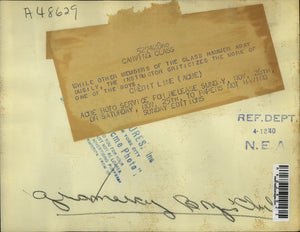 A48629
CARVING CLASS
WHILE OTHER MEMBERS OF THE CLASS MANNER WORK
BUSILY, THE INSTRUCTOR CRITICIZES THE WORK OF
ONE OF THE BOYS.
CREDIT LINE (ACME)
ACME ROTO SERVICE, FOR RELEASE SUNDAY, NOV. 26TH,
OR SATURDAY, NOV. 25TH TO PAPERS NOT HAVING
SUNDAY EDITIONS
REF. DEPT.
4-1240
N. E. A
URES, Inc
YORK CITY
Acme Photo
Gramercy Boys Club